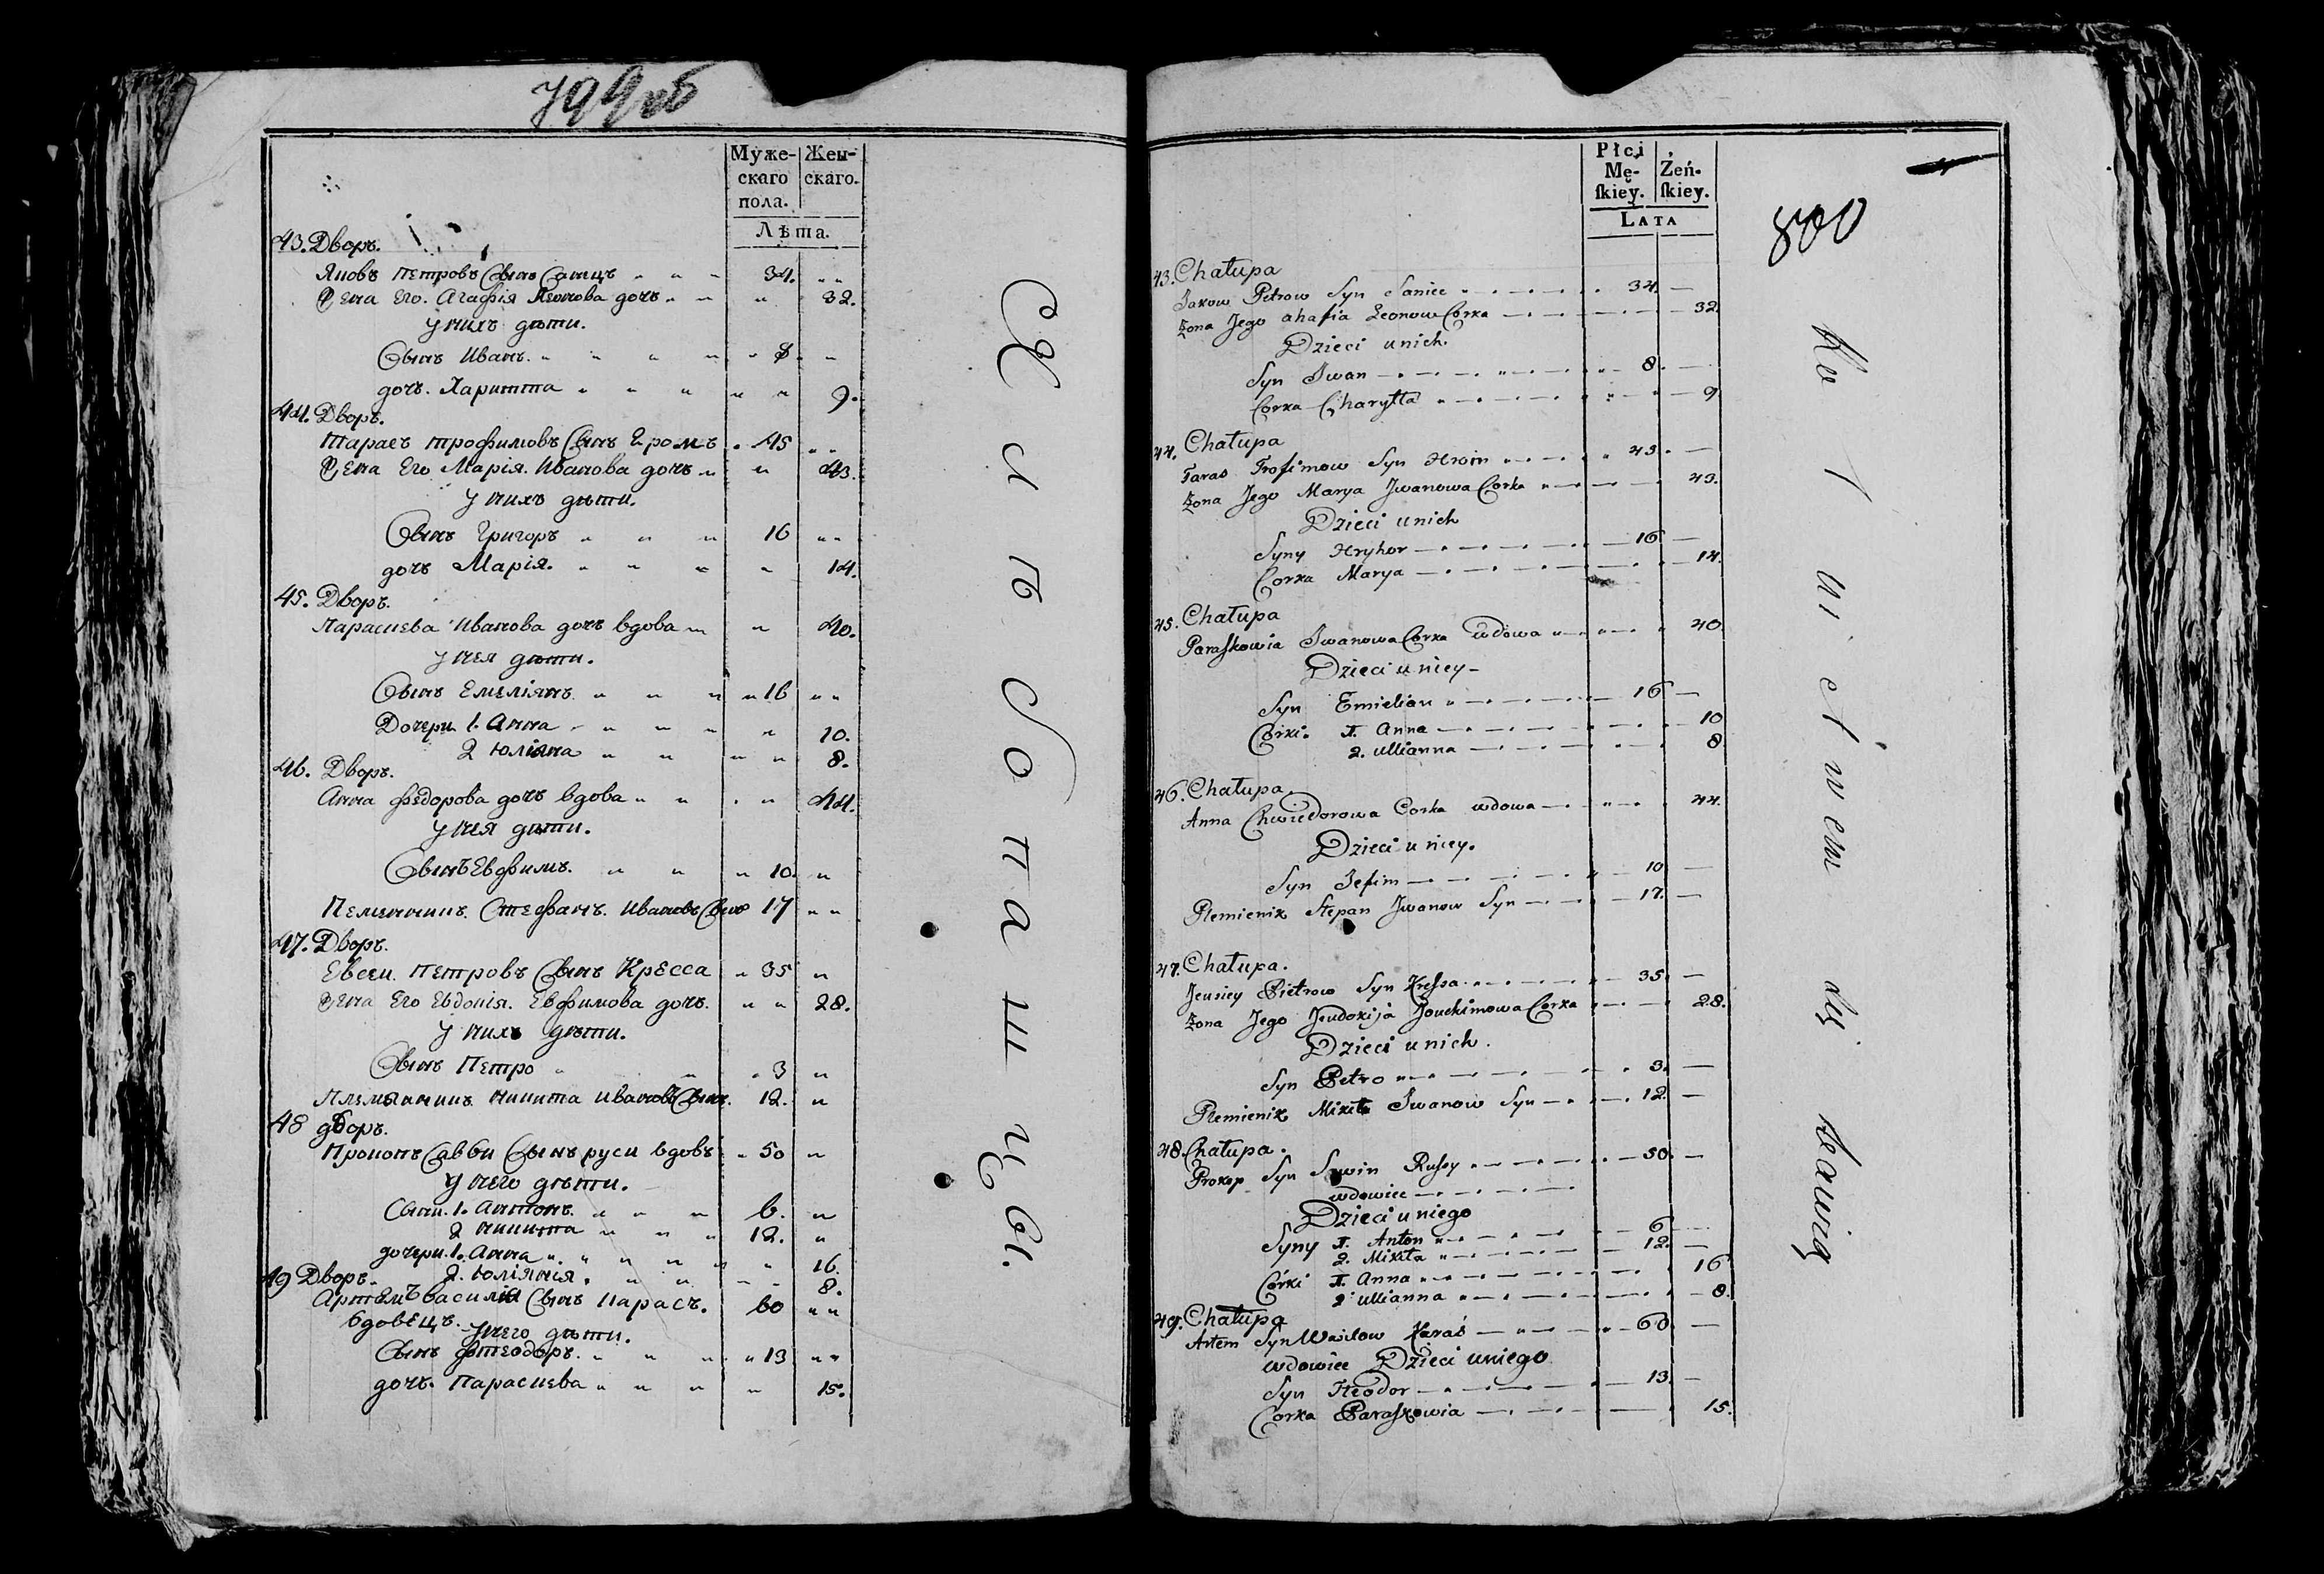 799об
Муже- Жен-
скаго скаго.
пола.
Лѣта.
43. Дворъ.
Яковъ Петровъ Сынъ Санецъ " " " 34. " "
Жена Его. Агафія Леонова дочъ " " " 32.
у нихъ дѣти.
Сынъ Иванъ. " " " " " 8 " "
дочъ. Харитта " " " " " 9.
44. Дворъ.
Тарасъ трофимовъ Сынъ " 45 " "
Жена Его Марія. Иванова дочъ " " 43.
у нихъ дѣти.
Сынъ Григоръ " " " 16 " "
дочъ Марія. " " " " 14.
45. Дворъ.
Парасцева Иванова дочъ вдова " " 40.
у нея дѣти.
Сынъ Емеліянъ. " " " " 16 " "
Дочери 1. Анна " " " " " 10.
2 Юліяна " " " " 8.
46. Дворъ.
Анна федорова дочъ вдова " " " " 44.
у нея дѣти.
Сынъ Евфимъ. " " " 10. "
Племянникъ. Стефанъ. Ивановъ Сынъ 17 " "
47. Дворъ.
Евсеи Петровъ Сынъ Кресса " 35 "
Жена Его Евдокія. Евфимова дочъ. " " 28.
у нихъ дѣти.
Сынъ Петро " " " 3 "
Племянникъ. никита ивановъ Сынъ. 12. "
48 дворъ.
Прокопъ Савви Сынъ руси вдовъ " 50 "
у него дѣти.
Сыни. 1. Антонъ. " " " 6. "
2 никита " " " 12. "
дочери. 1. Анна " " " " " " 16.
2. Юліянія " " " " " 8.
49 Дворъ.
Артемъ василія Сынъ Карасъ. 60 " "
вдовецъ. у него дѣти.
Сынъ фтеодоръ. " " " " 13 " "
дочъ. Парасцева " " " " 15.
800
Płci
Mę- Żeń-
ſkiey. ſkiey.
LATA
43. Chałupa
Jakow Petrow Syn Saniec 34. —
Żona Jego ahafia Leonowa Corka 32.
Dzieci u nich
Syn Jwan 8. —
Corka Charytta 9
44. Chałupa
Taras Trofimow Syn 43. —
Żona Jego Marya Jwanowa Corka 43.
Dzieci u nich
Syny Hryhor 16 —
Corka Marya 14.
45. Chałupa
Paraſkowia Jwanowa Corka wdowa 40
Dzieci u niey —
Syn Emielian 16 —
Córki. 1. Anna 10
2. ullianna 8
46. Chałupa.
Anna Chwiedorowa Corka wdowa 44.
Dzieci u niey.
Syn Jefim 10 —
Plemienik Stepan Jwanow Syn 17. —
47. Chałupa.
Jeusiey Pietrow Syn Kreſsa 35. —
Żona Jego Jeudokija Jouchimowa Corka 28.
Dzieci u nich.
Syn Petro 3. —
Plemienik Mikita Jwanow Syn 12. —
48. Chałupa.
Prokop Syn Sawin Ruſsy 50. —
wdowiec
Dzieci u niego
Syny 1. Anton 6 —
2. Mikita 12. —
Córki 1. Anna 16
2. ullianna 8.
49. Chałupa
Artem Syn Wasilow Karaś 60. —
wdowiec Dzieci u niego
Syn Fteodor 13. —
Corka Paraſkowia 15.